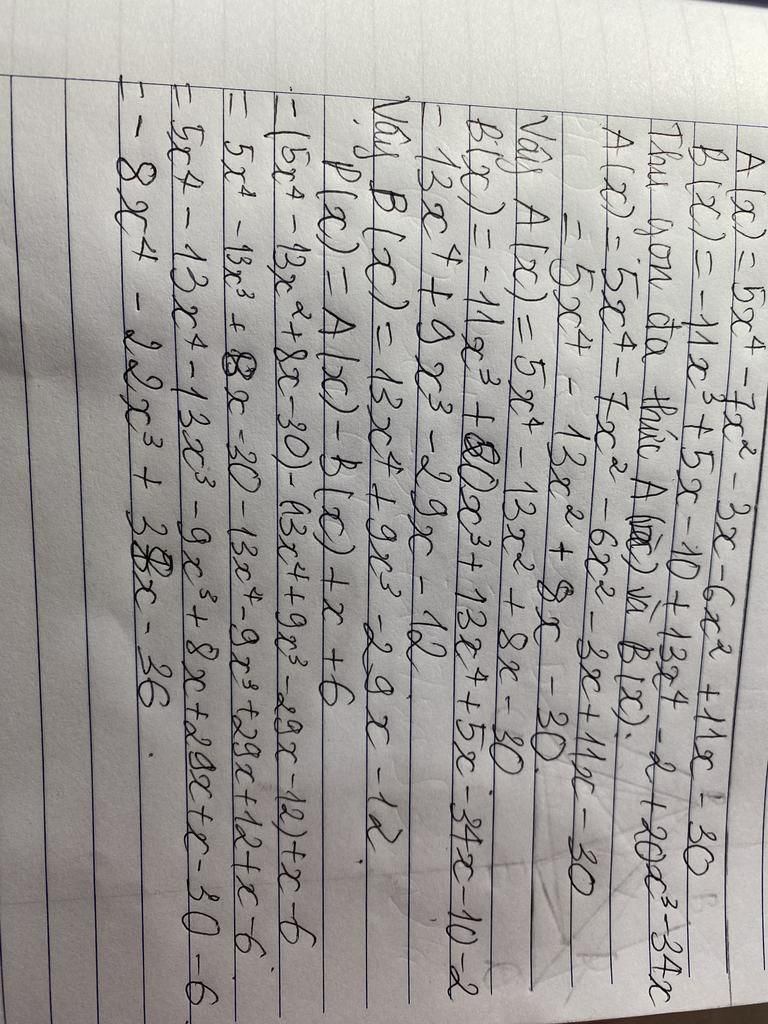 A(x) = 5x⁴ - 7x² - 3x - 6x² + 11x - 30
B(x) = -11x³ + 5x - 10 + 13x⁴ - 2 + 20x³ - 34x
Thu gọn đa thức A(x) và B(x):
A(x) = 5x⁴ - 7x² - 6x² - 3x + 11x - 30
= 5x⁴ - 13x² + 8x - 30.
Vậy A(x) = 5x⁴ - 13x² + 8x - 30
B(x) = -11x³ + 20x³ + 13x⁴ + 5x - 34x - 10 - 2
= 13x⁴ + 9x³ - 29x - 12
Vậy B(x) = 13x⁴ + 9x³ - 29x - 12.
P(x) = A(x) - B(x) + x + 6
= (5x⁴ - 13x² + 8x - 30) - (13x⁴ + 9x³ - 29x - 12) + x - 6
= 5x⁴ - 13x³ + 8x - 30 - 13x⁴ - 9x³ + 29x + 12 + x - 6.
= 5x⁴ - 13x⁴ - 13x³ - 9x³ + 8x + 29x + x - 30 - 6
= - 8x⁴ - 22x³ + 38x - 36.